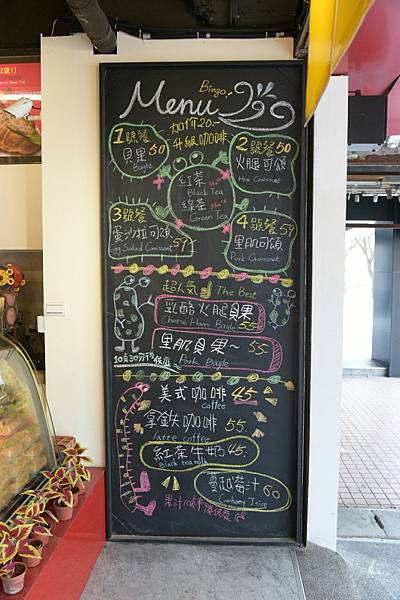 Bingo!
Menu
加价20.-
升級咖啡
1號餐
貝果 50
Bagle
2號餐 50
火腿可頌
Ham Croissant
紅茶
Black Tea
綠茶
Green Tea
3號餐
蛋沙拉可頌 59
Egg Salad Croissant
4號餐 59
里肌可頌
Pork Croissant
超人氣 The Best
乳酪火腿貝果
Cheese Ham Bagle 55.-
里肌貝果~ 55.-
Pork Bagle
美式咖啡 45.-
coffee
拿鐵咖啡 55.
latte coffee
紅茶牛奶 45.
Black tea milk
蔓越莓汁 60
Cranberry Juice